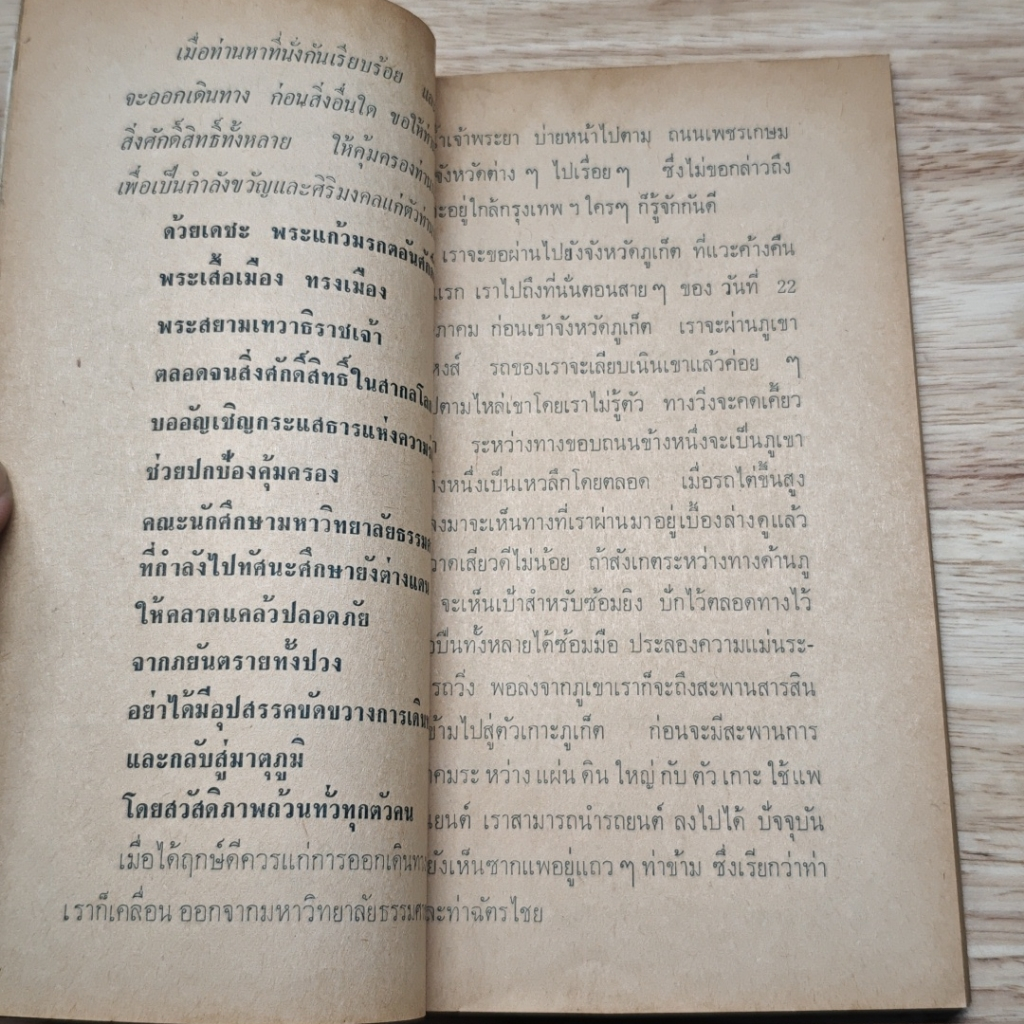 เมื่อท่านหาที่นั่งกันเรียบร้อย
จะออกเดินทาง ก่อนสิ่งอื่นใด ขอให้
สิ่งศักดิ์สิทธิ์ทั้งหลาย ให้คุ้มครองท่าน
เพื่อเป็นกำลังขวัญและศิริมงคลแก่ตัว
ด้วยเดชะ พระแก้วมรกตอัน
พระเสื้อเมือง ทรงเมือง
พระสยามเทวาธิราชเจ้า
ตลอดจนสิ่งศักดิ์สิทธิ์ในสากล
ขออัญเชิญกระแสธารแห่งความ
ช่วยปกป้องคุ้มครอง
คณะนักศึกษามหาวิทยาลัยธรรม
ที่กำลังไปทัศนะศึกษายังต่างแดน
ให้คลาดแคล้วปลอดภัย
จากภยันตรายทั้งปวง
อย่าได้มีอุปสรรคขัดขวางการเดิน
และกลับสู่มาตุภูมิ
โดยสวัสดิภาพถ้วนทั่วทุกตัวคน
เมื่อได้ฤกษ์ดีควรแก่การออกเดินทาง
เราก็เคลื่อน ออกจากมหาวิทยาลัยธรรม
เจ้าพระยา บ่ายหน้าไปตาม ถนนเพชรเกษม
จังหวัดต่าง ๆ ไปเรื่อย ๆ ซึ่งไม่ขอกล่าวถึง
อยู่ใกล้กรุงเทพ ฯ ใครๆ ก็รู้จักกันดี
เราจะขอผ่านไปยังจังหวัดภูเก็ต ที่แวะค้างคืน
แรก เราไปถึงที่นั่นตอนสาย ๆ ของ วันที่ 22
ภาคม ก่อนเข้าจังหวัดภูเก็ต เราจะผ่านภูเขา
หงส์ รถของเราจะเลียบเนินเขาแล้วค่อย ๆ
ไปตามไหล่เขาโดยเราไม่รู้ตัว ทางวิ่งจะคดเคี้ยว
ระหว่างทางขอบถนนข้างหนึ่งจะเป็นภูเขา
งหนึ่งเป็นเหวลึกโดยตลอด เมื่อรถไต่ขึ้นสูง
ลงมาจะเห็นทางที่เราผ่านมาอยู่เบื้องล่างดูแล้ว
วาดเสียวดีไม่น้อย ถ้าสังเกตระหว่างทางด้านภู
จะเห็นเป้าสำหรับซ้อมยิง ปักไว้ตลอดทางไว้
ปืนทั้งหลายได้ซ้อมมือ ประลองความแม่นระ-
รถวิ่ง พอลงจากภูเขาเราก็จะถึงสะพานสารสิน
ข้ามไปสู่ตัวเกาะภูเก็ต ก่อนจะมีสะพานการ
คมระหว่าง แผ่น ดิน ใหญ่ กับ ตัว เกาะ ใช้ แพ
นยนต์ เราสามารถนำรถยนต์ ลงไปได้ ปัจจุบัน
ยังเห็นซากแพอยู่แถว ๆ ท่าข้าม ซึ่งเรียกว่าท่า
ละท่าฉัตรไชย